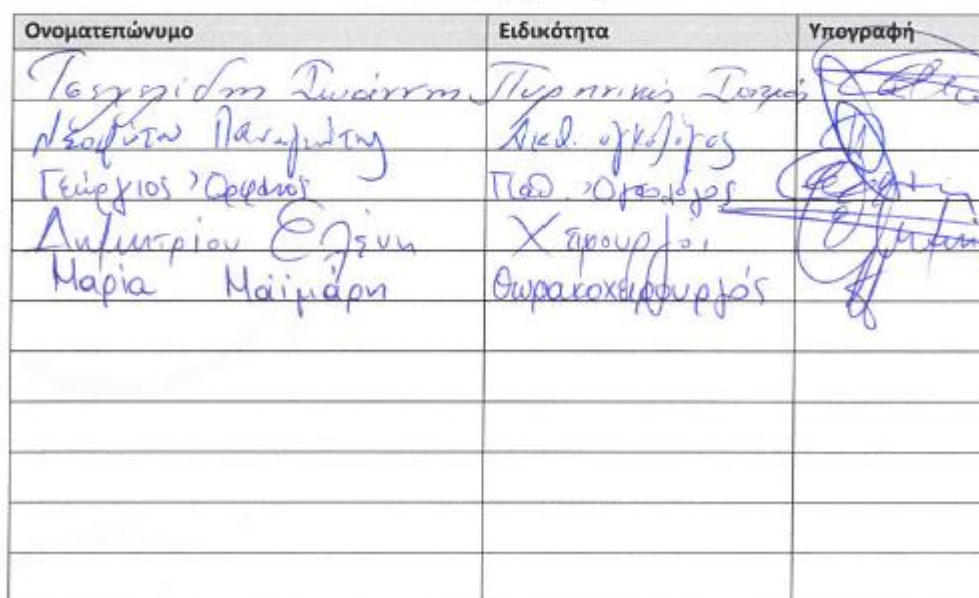 Ονοματεπώνυμο Ειδικότητα Υπογραφή
Ιωάννης Πυρηνικός Ιατρός
Παναγιώτης Ακτ. ογκολόγος
Γεώργιος Ορφανός Παθ. Ογκολόγος
Δημητρίου Ελένη Χειρουργός
Μαρία Μαϊμάρη Θωρακοχειρουργός